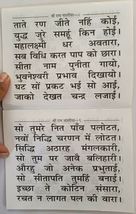 श्री राम चालीसा
ताते रण जीते नहिं कोई,
युद्ध जुरे समहूं किन होई।
महालक्ष्मी धर अवतारा,
सब विधि करत पाप को छारा।
सीता नाम पुनीता गायो,
भुवनेश्वरी प्रभाव दिखायो।
घट सों प्रकट भई सो आई,
जाको देखत चन्द्र लजाई।
श्री राम चालीसा
सो तुमरे नित पाँव पलोटत,
नवों निद्धि चरणन में लोटत।
सिद्धि अठारह मंगलकारी,
सो तुम पर जावै बलिहारी।
औरहु जो अनेक प्रभुताई,
सो सीतापति तुमहिं बनाई।
इच्छा ते कोटिन संसारा,
रचत न लागत पल की वारा।